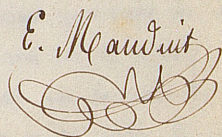 E. Mauduit